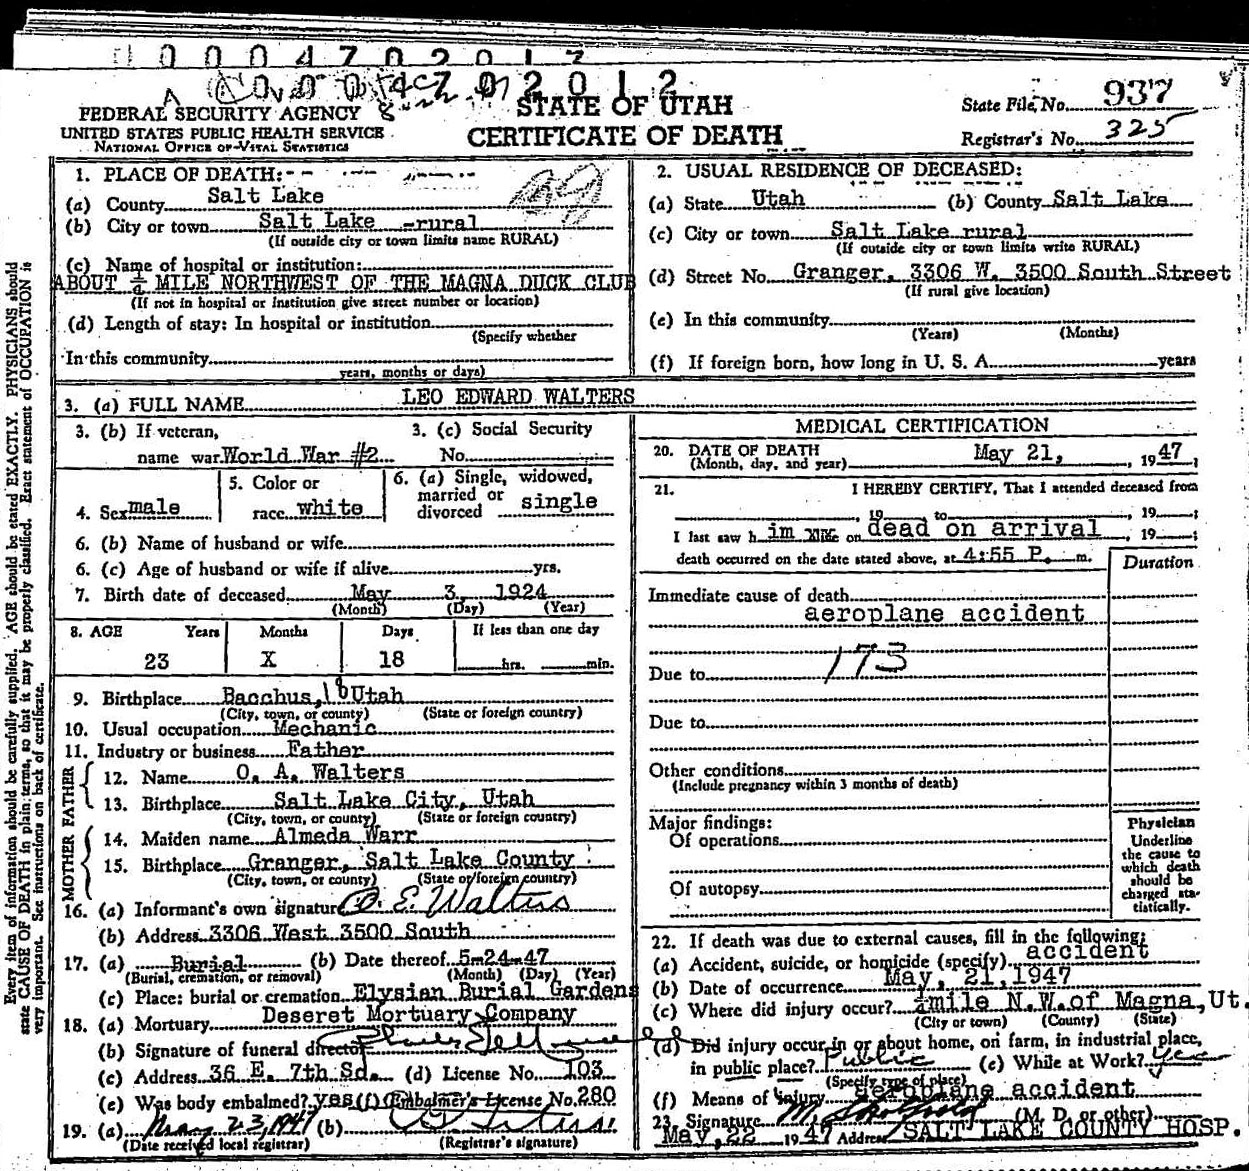 000470201
000470 2012
FEDERAL SECURITY AGENCY
UNITED STATES PUBLIC HEALTH SERVICE
NATIONAL OFFICE OF VITAL STATISTICS
STATE OF UTAH
CERTIFICATE OF DEATH
State File No. 937
Registrar's No. 325
1. PLACE OF DEATH:
(a) County Salt Lake
(b) City or town Salt Lake -rural
(If outside city or town limits name RURAL)
(c) Name of hospital or institution:
ABOUT MILE NORTHWEST OF THE MAGNA DUCK CLUB
(If not in hospital or institution give street number or location)
(d) Length of stay: In hospital or institution
(Specify whether
In this community
years, months or days)
2. USUAL RESIDENCE OF DECEASED:
(a) State Utah (b) County Salt Lake
(c) City or town Salt Lake rural
(If outside city or town limits write RURAL)
(d) Street No. Granger, 3306 W. 3500 South Street
(If rural give location)
(e) In this community
(Years) (Months)
(f) If foreign born, how long in U. S. A. years
3. (a) FULL NAME LEO EDWARD WALTERS
3. (b) If veteran, 3. (c) Social Security
name war World War #2 No.
4. Sex male
5. Color or
race white
6. (a) Single, widowed,
married or
divorced single
6. (b) Name of husband or wife
6. (c) Age of husband or wife if alive yrs.
7. Birth date of deceased May 3, 1924
(Month) (Day) (Year)
8. AGE Years Months Days If less than one day
23 X 18 hrs. min.
9. Birthplace Bacchus, 18 Utah
(City, town, or county) (State or foreign country)
10. Usual occupation Mechanic
11. Industry or business Father
FATHER
12. Name O. A. Walters
13. Birthplace Salt Lake City, Utah
(City, town, or county) (State or foreign country)
MOTHER
14. Maiden name Almeda Warr
15. Birthplace Granger, Salt Lake County
(City, town, or county) (State or foreign country)
16. (a) Informant's own signature O. E. Walters
(b) Address 3306 West 3500 South
17. (a) Burial (b) Date thereof 5-24-47
(Burial, cremation, or removal) (Month) (Day) (Year)
(c) Place: burial or cremation Elysian Burial Gardens
18. (a) Mortuary Deseret Mortuary Company
(b) Signature of funeral director
(c) Address 36 E. 7th Sd. (d) License No. 103
(e) Was body embalmed? yes (f) Embalmer's License No. 280
19. (a) May 23, 1947 (b)
(Date received local registrar) (Registrar's signature)
MEDICAL CERTIFICATION
20. DATE OF DEATH
(Month, day, and year) May 21, 1947
21. I HEREBY CERTIFY, That I attended deceased from
, 19 to , 19 ;
I last saw h im on dead on arrival , 19 ;
death occurred on the date stated above, at 4:55 P. m.
Duration
Immediate cause of death
aeroplane accident
173
Due to
Due to
Other conditions
(Include pregnancy within 3 months of death)
Major findings:
Of operations
Of autopsy
Physician
Underline
the cause to
which death
should be
charged sta-
tistically.
22. If death was due to external causes, fill in the following:
(a) Accident, suicide, or homicide (specify) accident
(b) Date of occurrence May, 21, 1947
(c) Where did injury occur? mile N.W. of Magna, Ut.
(City or town) (County) (State)
(d) Did injury occur in or about home, on farm, in industrial place,
in public place? Public (e) While at Work? yes
(Specify type of place)
(f) Means of injury aeroplane accident
23. Signature (M. D. or other)
May, 22 1947 Address SALT LAKE COUNTY HOSP.
Every item of information should be carefully supplied. AGE should be stated EXACTLY. PHYSICIANS should
state CAUSE OF DEATH in plain terms, so that it may be properly classified. Exact statement of OCCUPATION is
very important. See instructions on back of certificate.